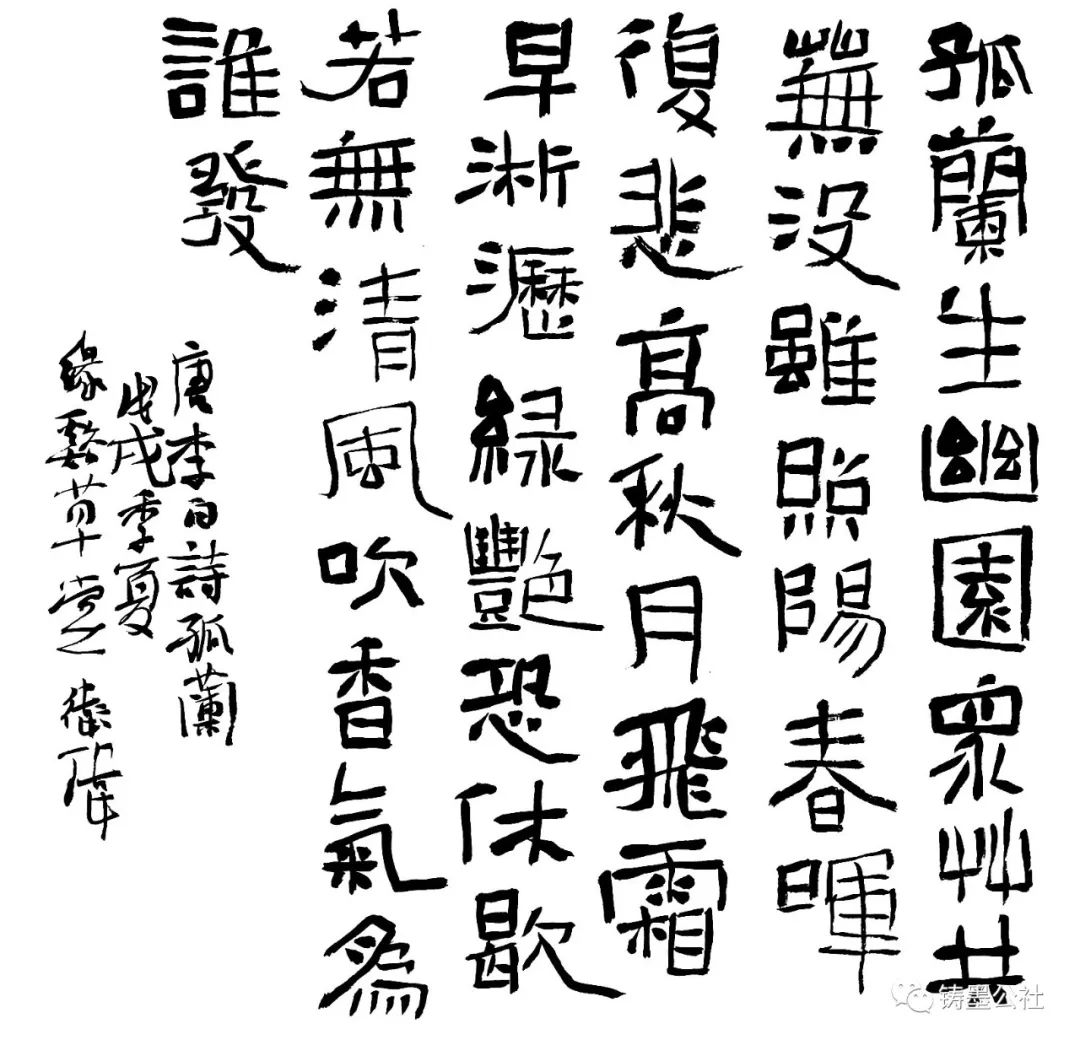 孤蘭生幽園眾艸共
蕪没雖照陽春暉
復悲高秋月飛霜
早淅瀝緑豔恐休歇
若無清風吹香氣為
誰發
唐李白詩孤蘭
戊戌季夏
緣谿草堂
铸墨公社